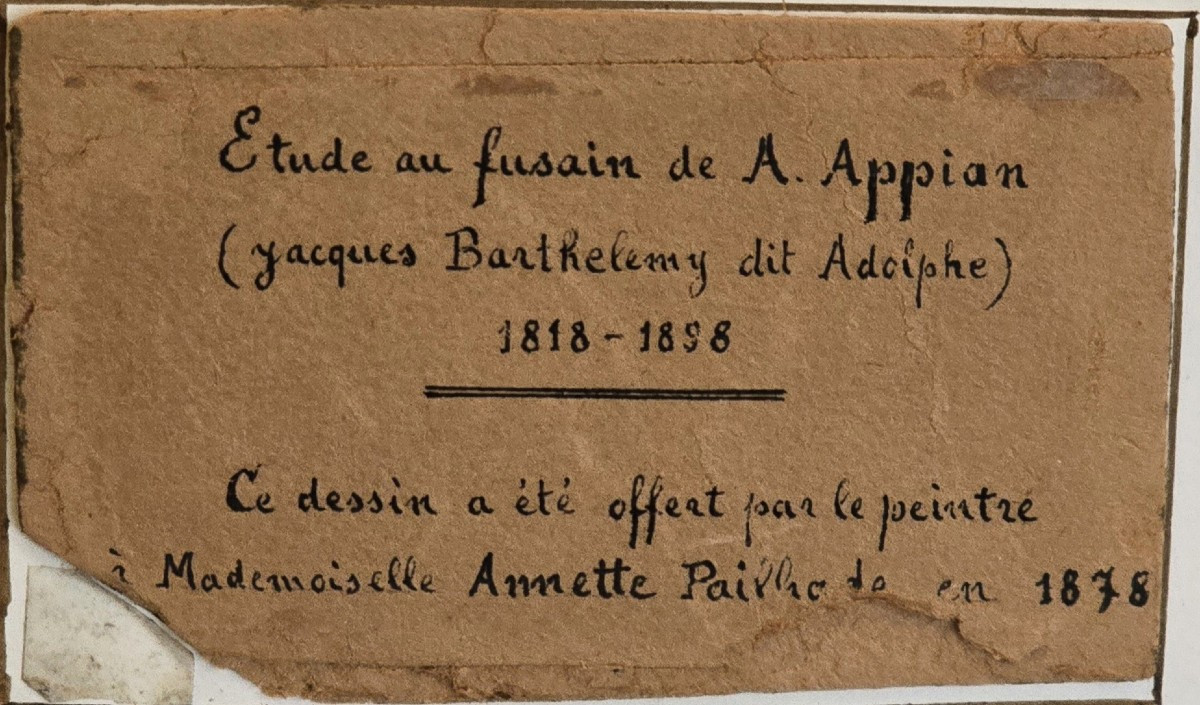 Etude au fusain de A. Appian
(Jacques Barthelemy dit Adolphe)
1818 - 1898
Ce dessin a été offert par le peintre
à Mademoiselle Annette en 1878